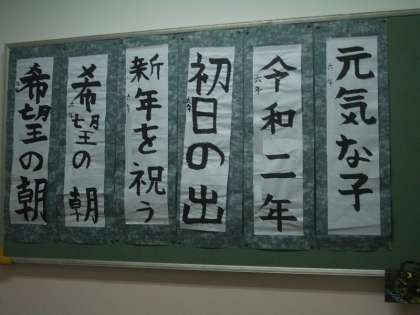 元気な子
六年
令和二年
六年
初日の出
六年
新年を祝う
希望の朝
希望の朝